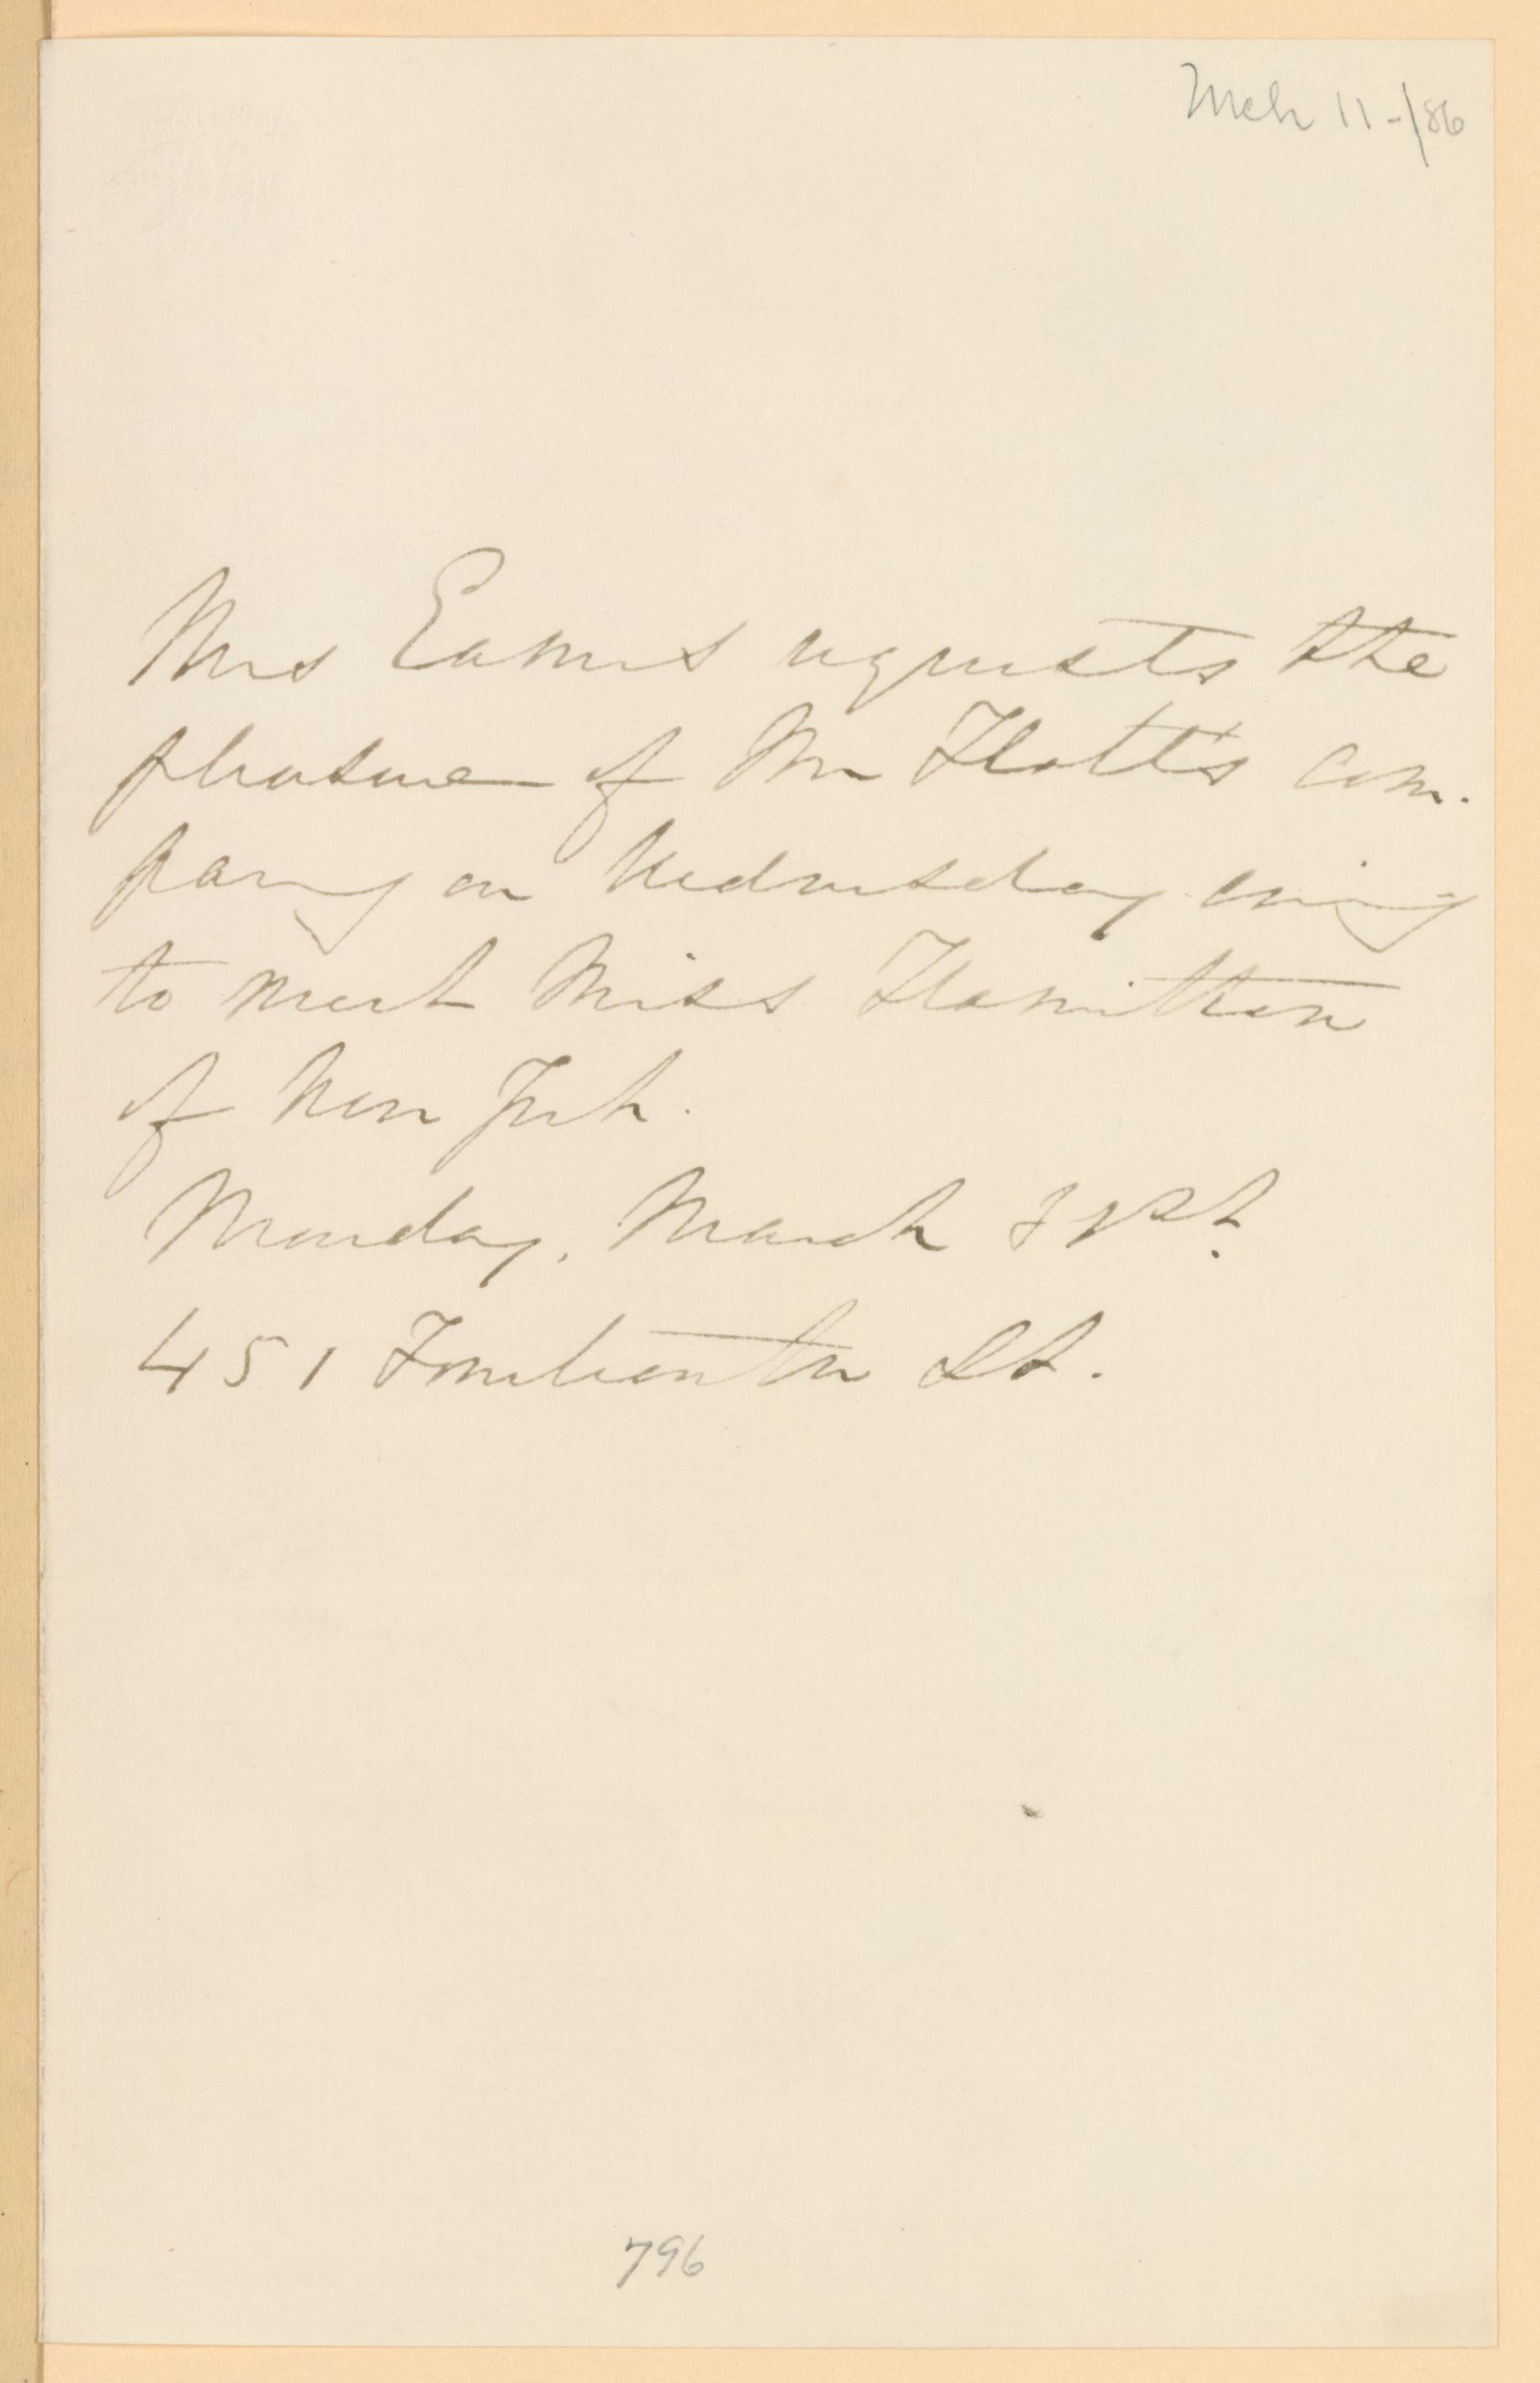 Mch 11 - /86
Mrs Eames requests the
pleasure of Mr Holt's com-
pany on Wednesday evening
to meet Miss Hamilton
of New York.
Monday, March 31st.
451 Fourteenth St.
796